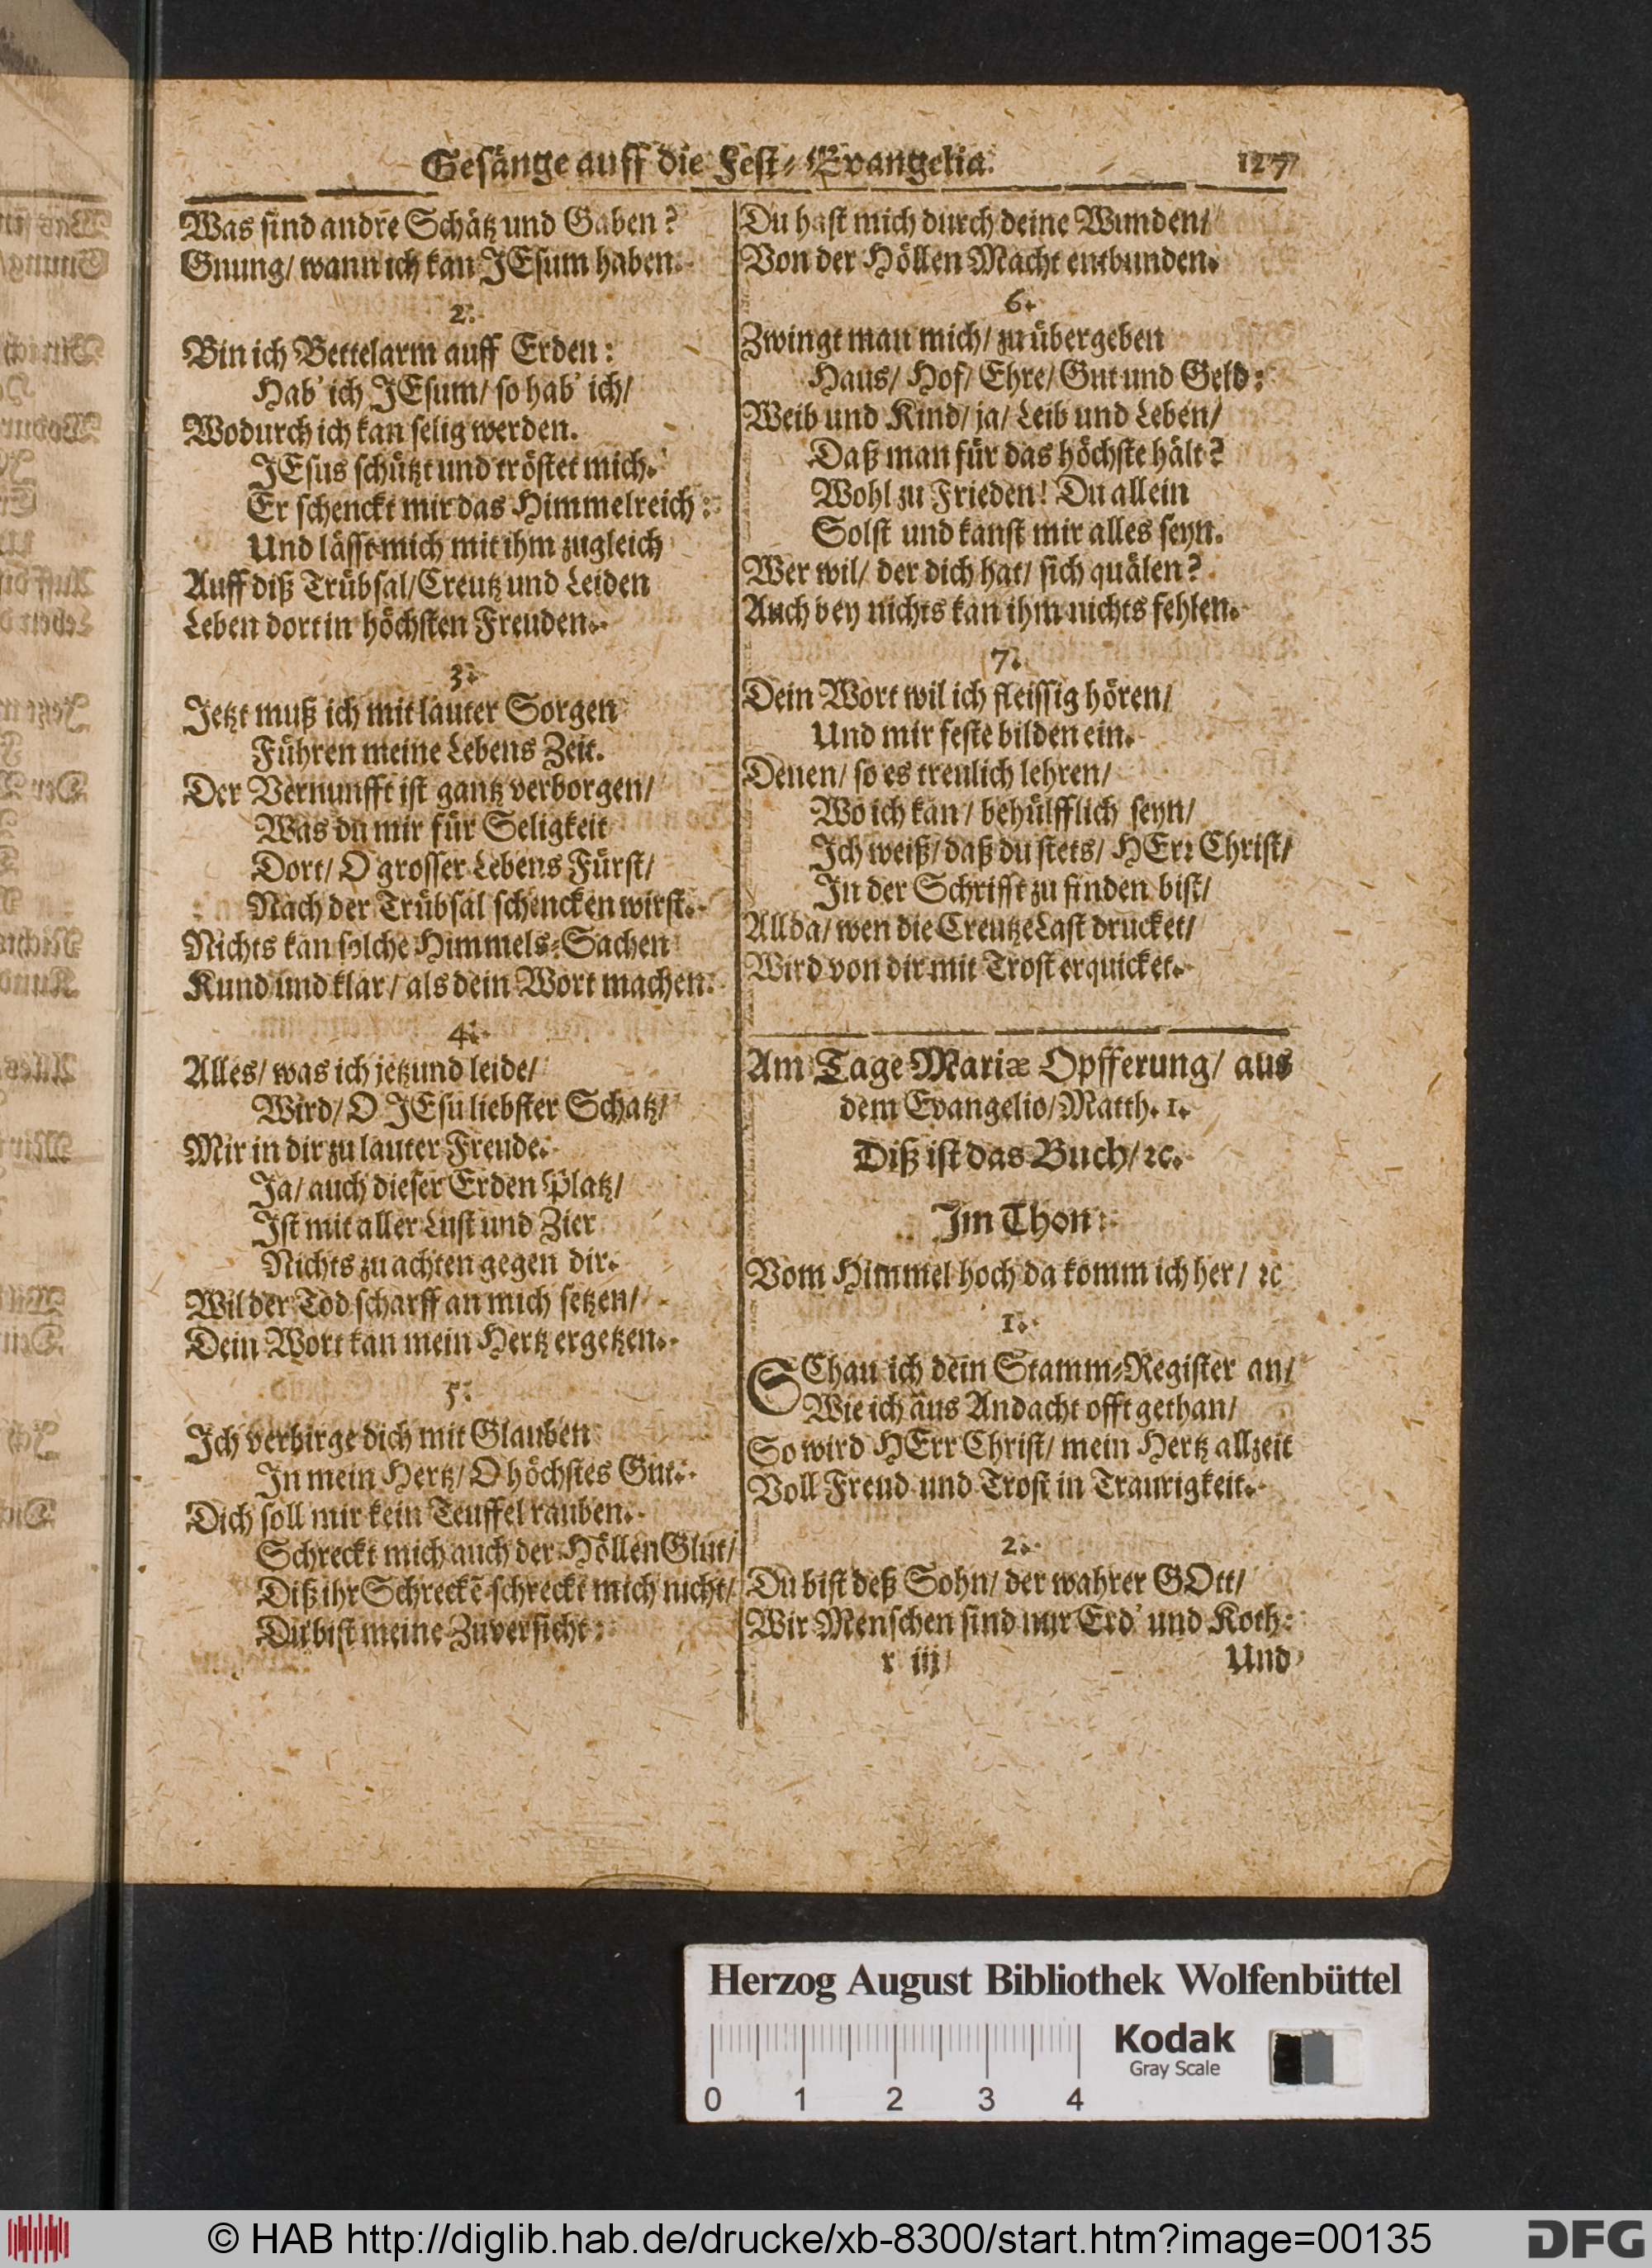 Gesänge auff die Fest-Evangelia. 127
Was sind andre Schätz und Gaben?
Gnung/ wann ich kan JEsum haben.
2.
Bin ich Bettelarm auff Erden:
Hab' ich JEsum/ so hab' ich/
Wodurch ich kan selig werden.
JEsus schützt und tröstet mich.
Er schenckt mir das Himmelreich:
Und lässt mich mit ihm zugleich
Auff diß Trübsal/ Creutz und Leiden
Leben dort in höchsten Freuden.
3.
Jetzt muß ich mit lauter Sorgen
Führen meine Lebens Zeit.
Der Vernunfft ist gantz verborgen/
Was du mir für Seligkeit
Dort/ O grosser Lebens Fürst/
Nach der Trübsal schencken wirst.
Nichts kan solche Himmels-Sachen
Kund und klar/ als dein Wort machen.
4.
Alles/ was ich jetzund leide/
Wird/ O JEsu liebster Schatz/
Mir in dir zu lauter Freude.
Ja/ auch dieser Erden Platz/
Ist mit aller Lust und Zier
Nichts zu achten gegen dir.
Wil der Tod scharff an mich setzen/
Dein Wort kan mein Hertz ergetzen.
5.
Ich verbirge dich mit Glauben
In mein Hertz/ O höchstes Gut.
Dich soll mir kein Teuffel rauben.
Schreckt mich auch der Höllen Glut/
Diß ihr Schreckē schreckt mich nicht/
Du bist meine Zuversicht:
Du hast mich durch deine Wunden/
Von der Höllen Macht entbunden.
6.
Zwingt man mich/ zu übergeben
Haus/ Hof/ Ehre/ Gut und Geld:
Weib und Kind/ ja/ Leib und Leben/
Daß man für das höchste hält?
Wohl zu Frieden! Du allein
Solst und kanst mir alles seyn.
Wer wil/ der dich hat/ sich quälen?
Auch bey nichts kan ihm nichts fehlen.
7.
Dein Wort wil ich fleissig hören/
Und mir feste bilden ein.
Denen/ so es treulich lehren/
Wo ich kan/ behülfflich seyn/
Ich weiß/ daß du stets/ HErr Christ/
In der Schrifft zu finden bist/
Allda/ wen die Creutze Last drücket/
Wird von dir mit Trost erquicket.
Am Tage Mariæ Opfferung/ aus
dem Evangelio/ Matth. 1.
Diß ist das Buch/ ꝛc.
Im Thon:
Vom Himmel hoch da komm ich her/ ꝛc
1.
SChau ich dein Stamm-Register an/
Wie ich aus Andacht offt gethan/
So wird HErr Christ/ mein Hertz allzeit
Voll Freud und Trost in Traurigkeit.
2.
Du bist deß Sohn/ der wahrer GOtt/
Wir Menschen sind nur Erd' und Koth:
r iij Und
Herzog August Bibliothek Wolfenbüttel
Kodak
Gray Scale
0 1 2 3 4
© HAB http://diglib.hab.de/drucke/xb-8300/start.htm?image=00135
DFG